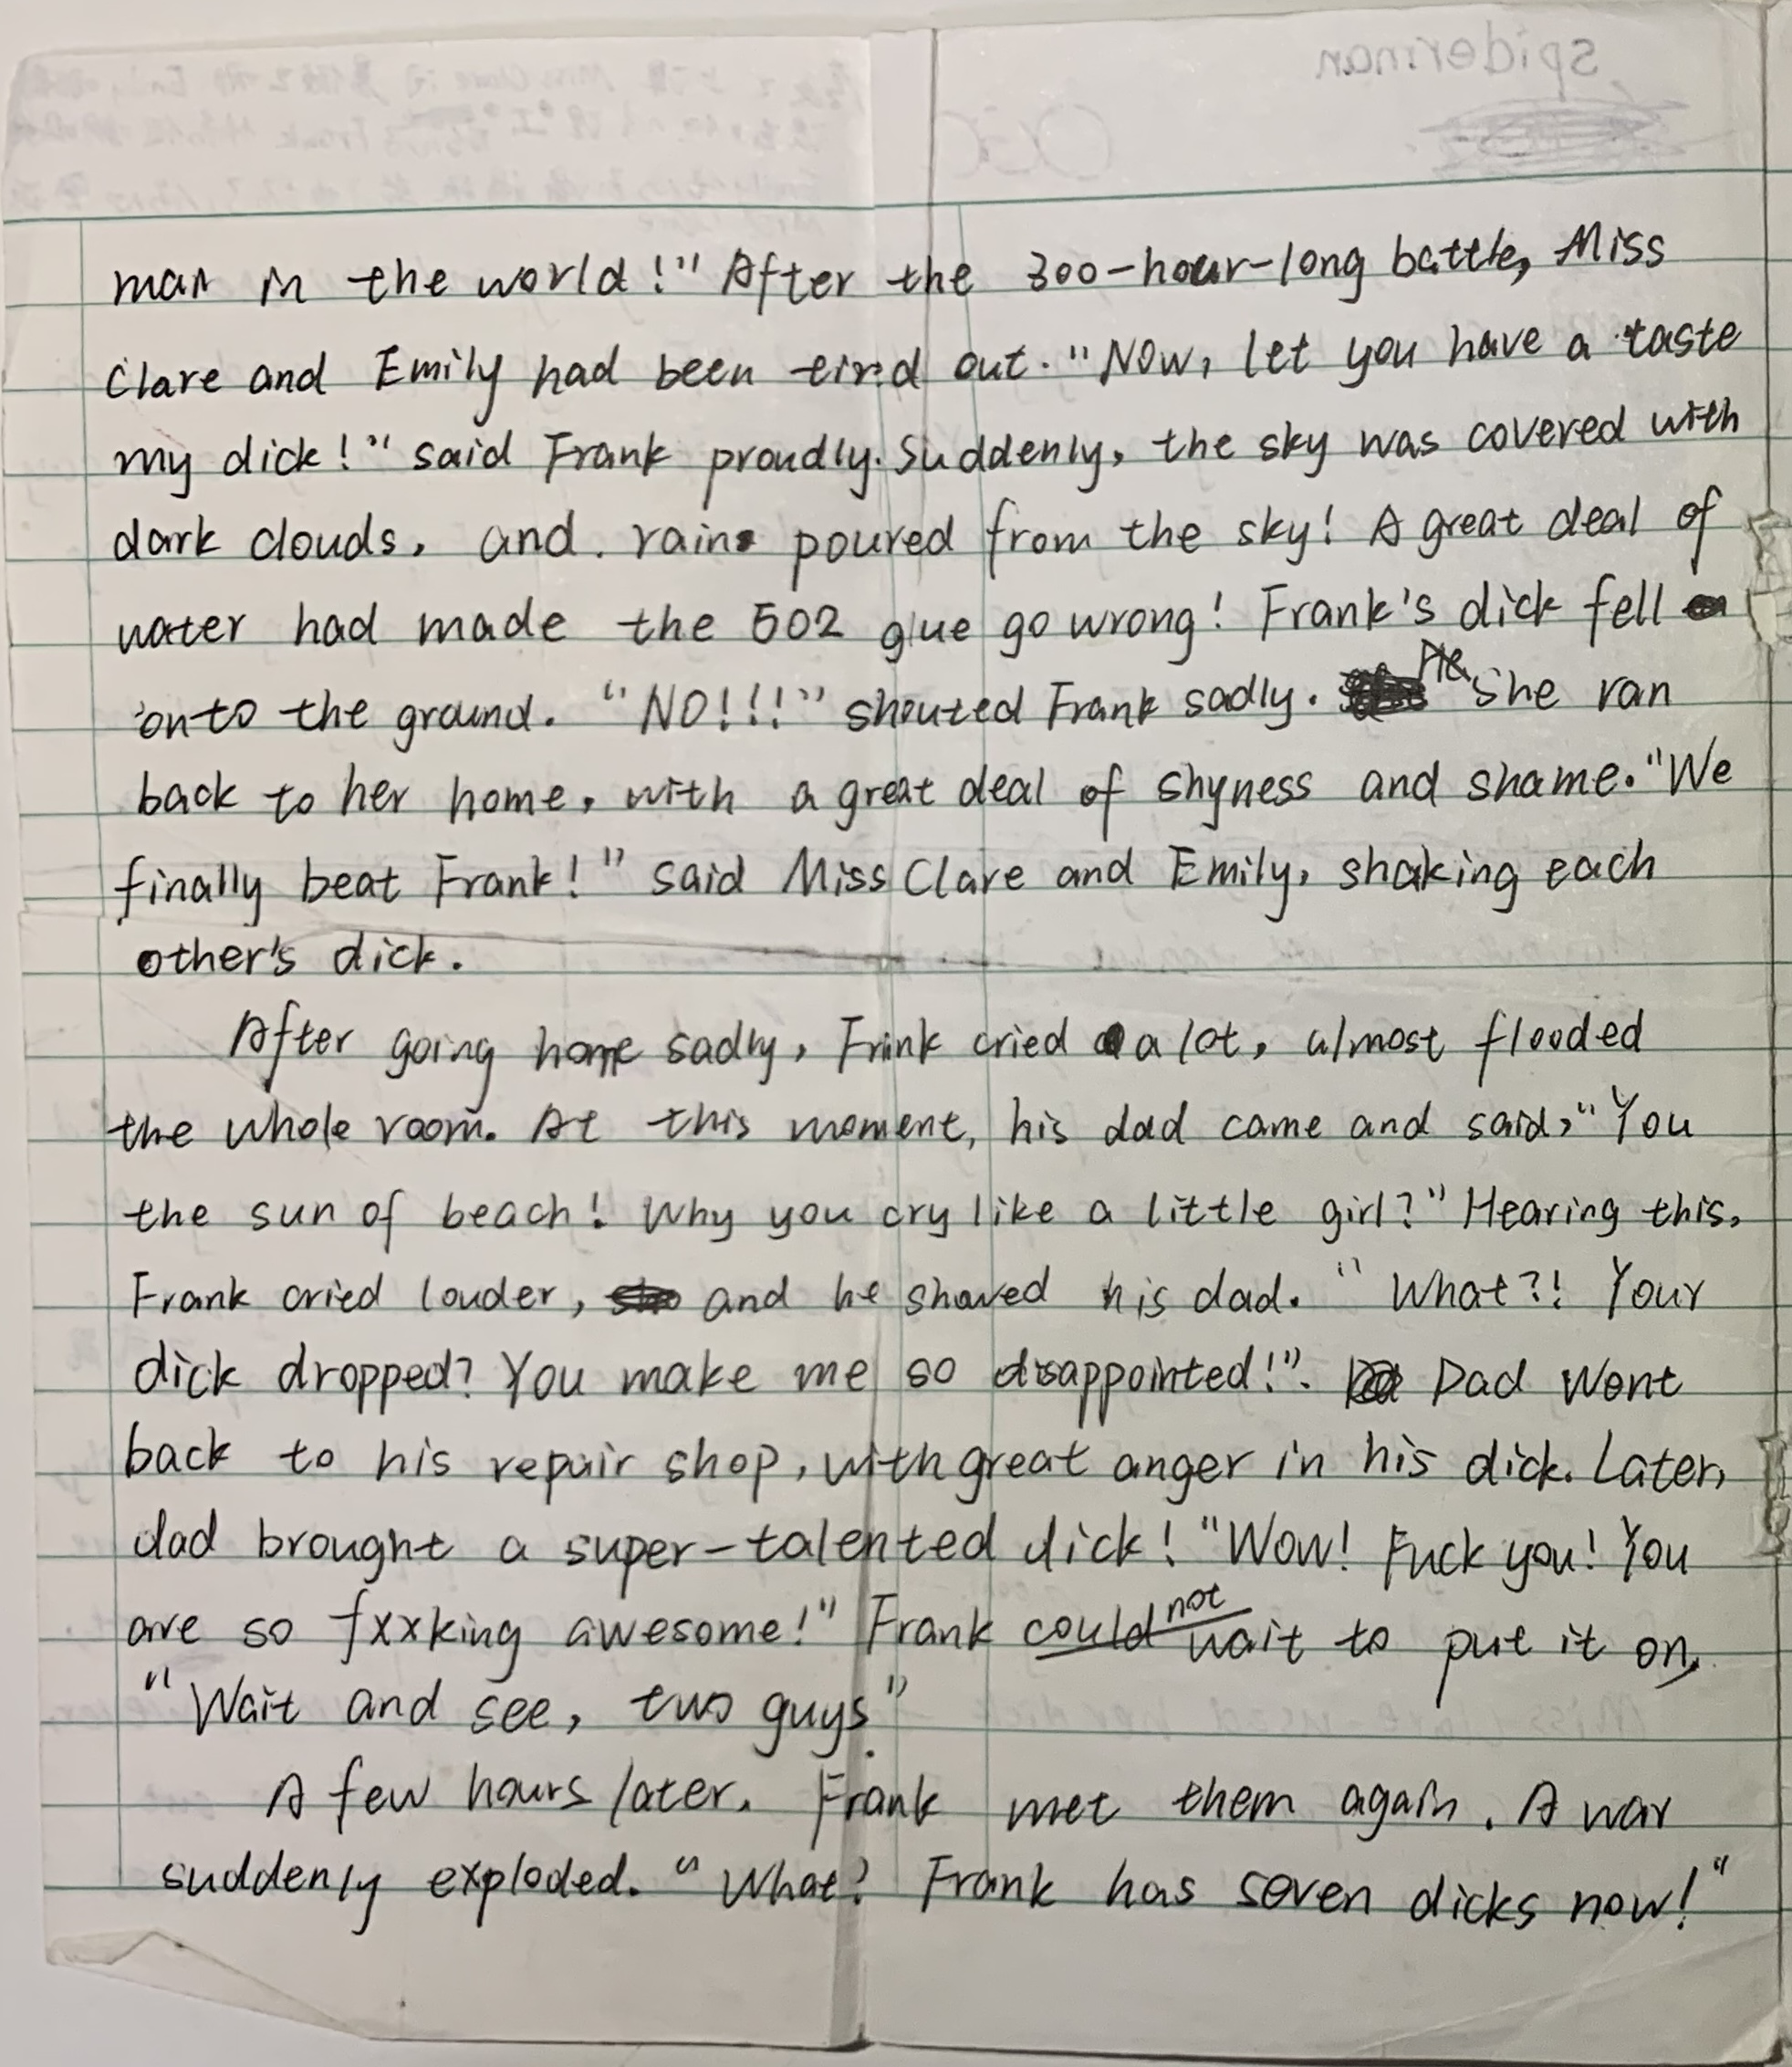 spiderman
man in the world!" After the 300-hour-long battle, Miss
Clare and Emily had been tired out. "Now, let you have a taste
my dick!" said Frank proudly. Suddenly, the sky was covered with
dark clouds, and rain poured from the sky! A great deal of
water had made the 502 glue go wrong! Frank's dick fell
onto the ground. "NO!!!" shouted Frank sadly. He she ran
back to her home, with a great deal of shyness and shame. "We
finally beat Frank!" said Miss Clare and Emily, shaking each
other's dick.
After going home sadly, Frank cried a lot, almost flooded
the whole room. At this moment, his dad came and said, "You
the sun of beach! Why you cry like a little girl?" Hearing this,
Frank cried louder, and he showed his dad. "What?! Your
dick dropped? You make me so disappointed!". Dad went
back to his repair shop, with great anger in his dick. Later,
dad brought a super-talented dick! "Wow! Fuck you! You
are so fxxking awesome!" Frank could not wait to put it on,
"Wait and see, two guys."
A few hours later, Frank met them again. A war
suddenly exploded. "What? Frank has seven dicks now!"